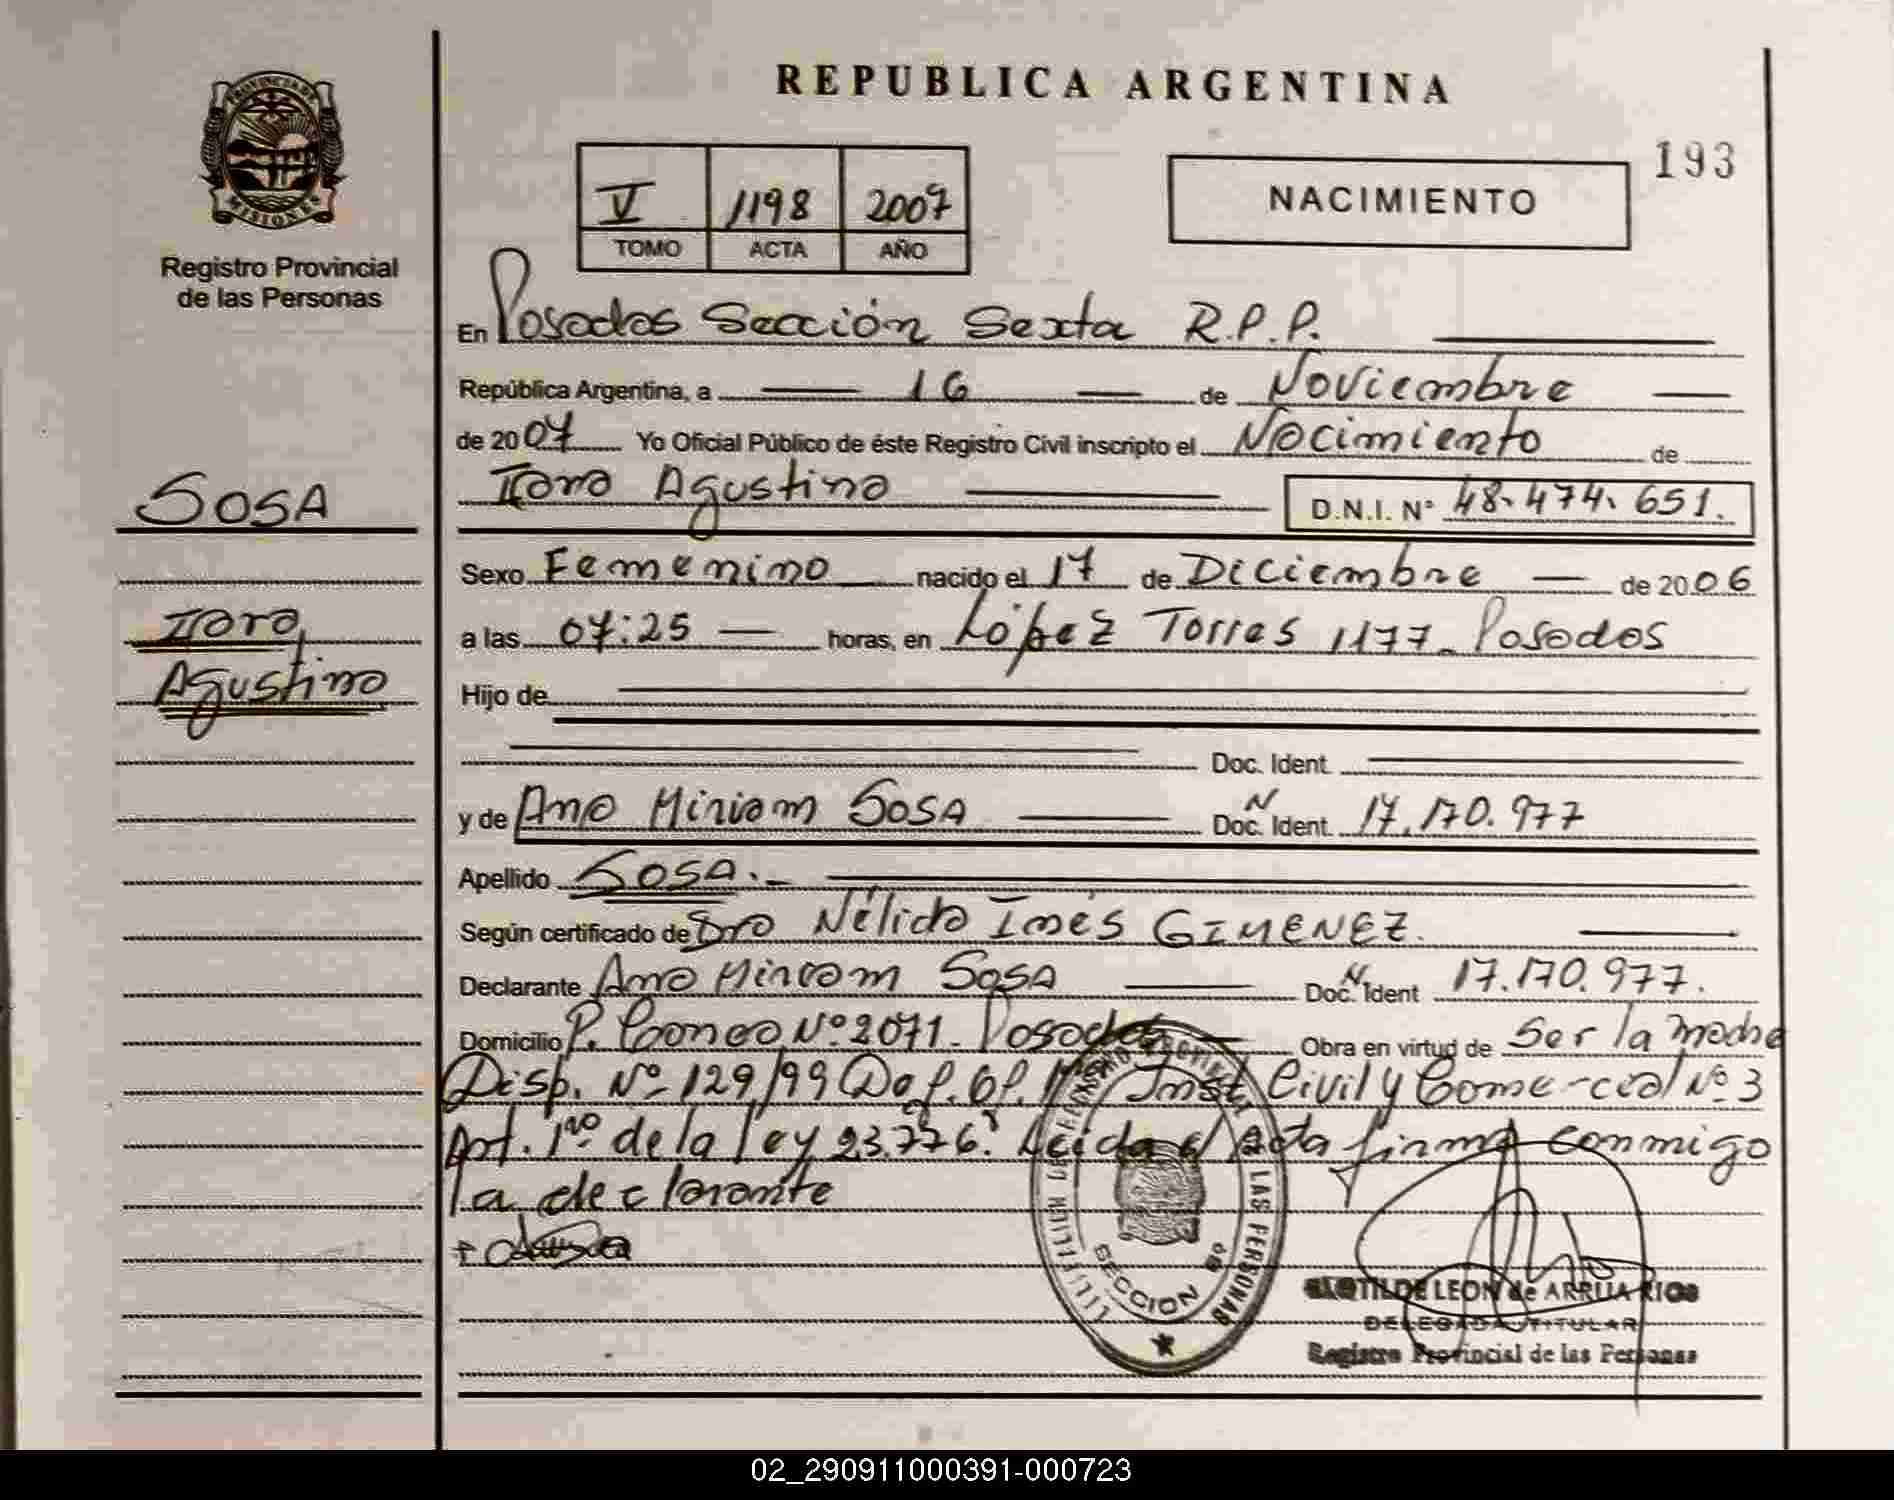 REPUBLICA ARGENTINA
193
PROVINCIA DE
MISIONES
Registro Provincial
de las Personas
V 1198 2007
TOMO ACTA AÑO
NACIMIENTO
En Posadas Sección Sexta R.P.P.
República Argentina, a 16 de Noviembre
de 2007 Yo Oficial Público de éste Registro Civil inscripto el Nacimiento de
Itara Agustina D.N.I. Nº 48.474.651.
SOSA
Itara
Agustina
Sexo Femenino nacido el 17 de Diciembre de 2006
a las 07:25 horas, en López Torres 1177 - Posadas
Hijo de
Doc. Ident.
y de Ana Miriam SOSA N Doc. Ident. 17.170.977
Apellido SOSA.-
Según certificado de Dra Nélida Inés GIMENEZ.
Declarante Ana Miriam SOSA N Doc. Ident 17.170.977.
Domicilio P. Nº 2071 - Posadas Obra en virtud de Ser la madre
Disp. Nº 129/99 Inst Civil y Comercial Nº 3
Art. 1ro de la ley 23.776. Leida el Acta firma conmigo
la declarante
SECCION 6º
CLOTILDE LEON de ARRUA RIOS
DELEGADA TITULAR
Registro Provincial de las Personas
02_290911000391-000723